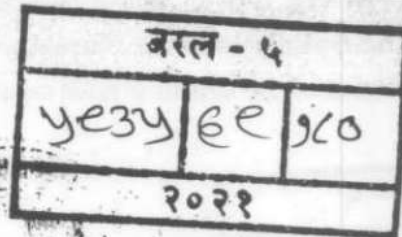 बरल - ५
५९३५ ६९ १८०
२०२१